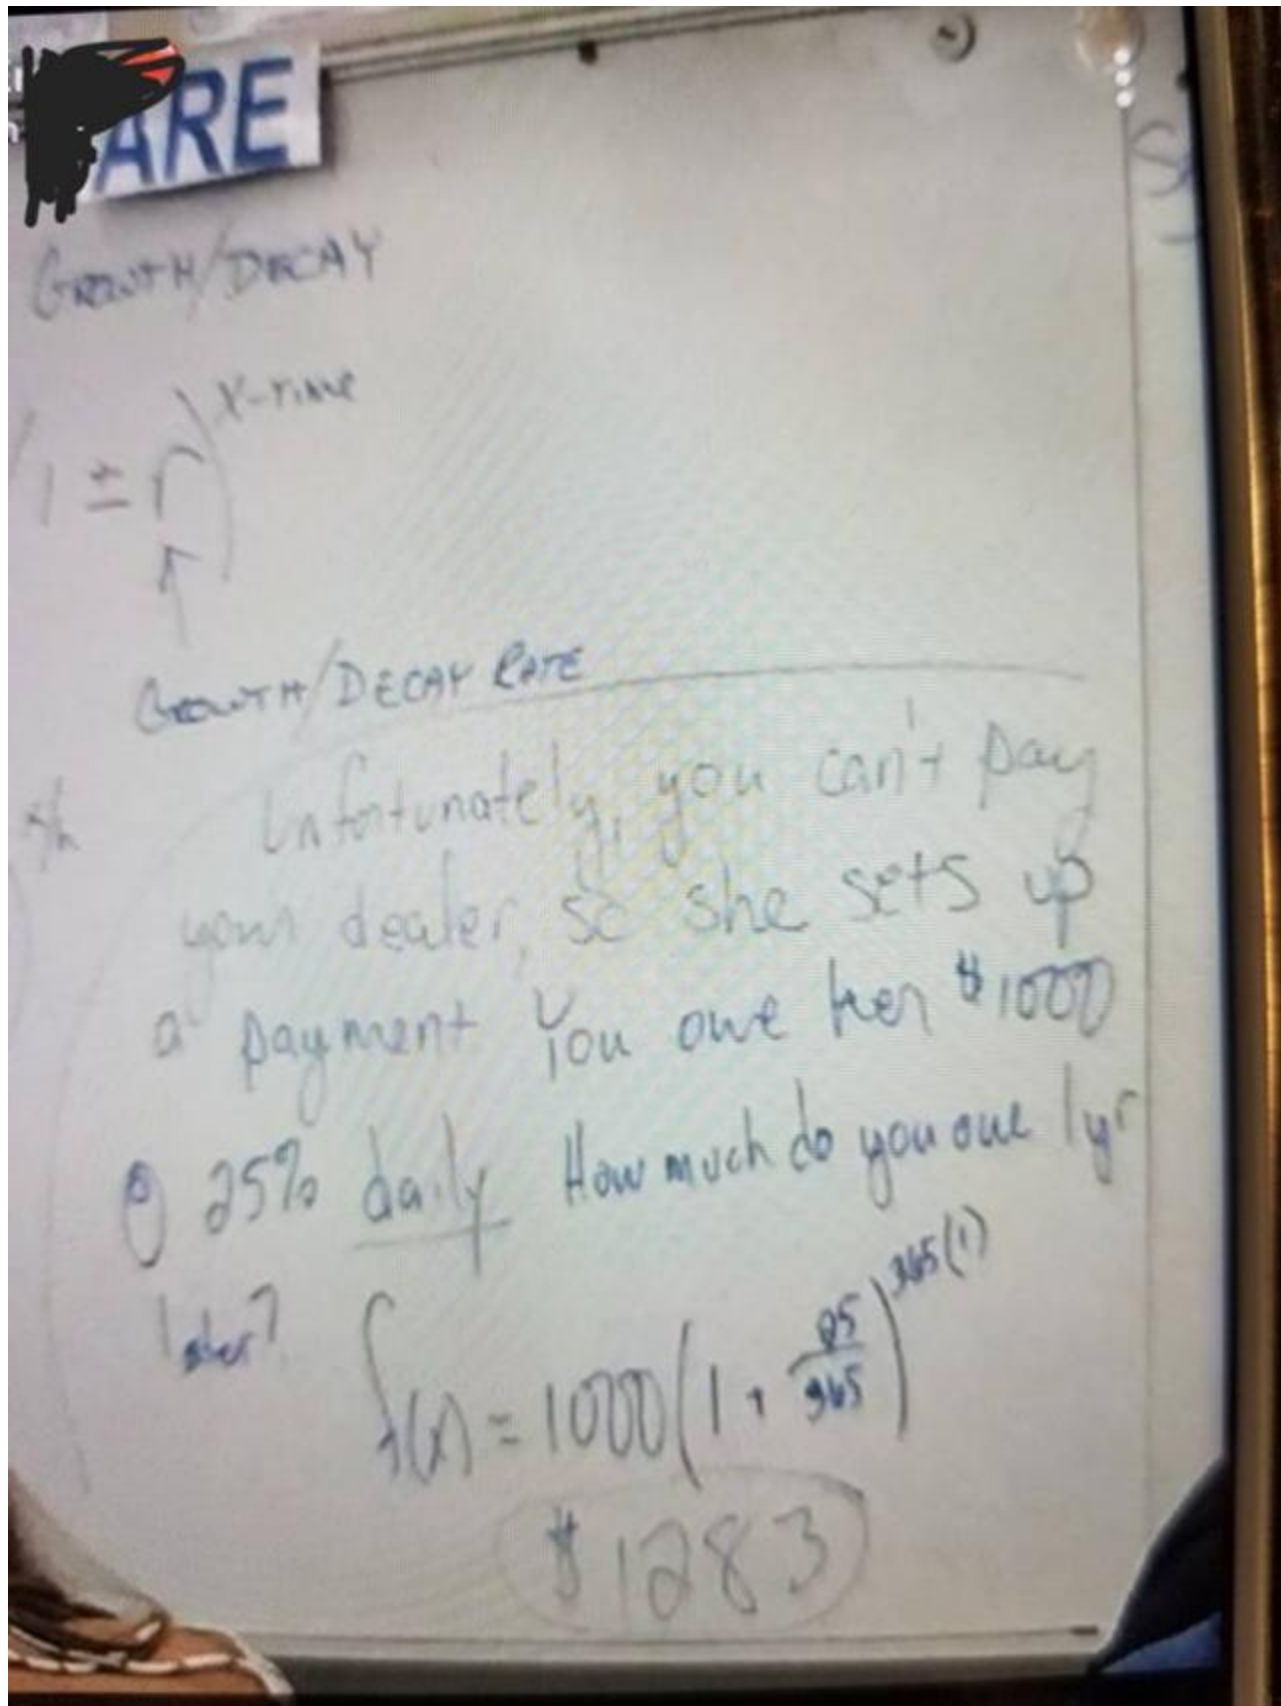 ARE
GROWTH/DECAY
1 ± r) x-TIME
↑
GROWTH/DECAY RATE
Unfortunately, you can't pay
your dealer, so she sets up
a payment. You owe her $1000
@ 25% daily How much do you owe 1yr
later?
f(x) = 1000(1 + .25/365)^365(1)
$1283